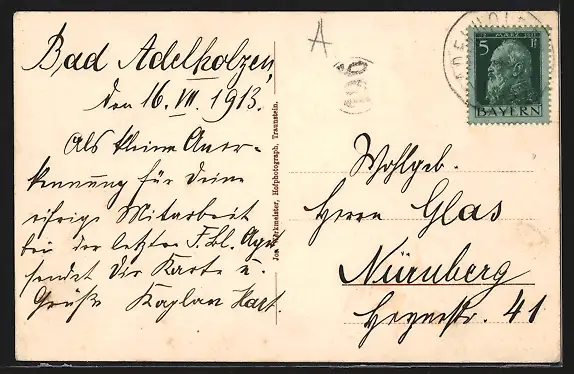 Bad Adelholzen,
den 16. VII. 1913.
Als kleine Aner-
kennung für Deine
eifrige Mitarbeit
bei der letzten F. Bl. Agit
sendet Dir Karte u.
Grüße Kaplan Hart.
Jos. Werkmeister, Hofphotograph, Traunstein.
A
5 Pf
BAYERN
Wohlgeb.
Herrn Glas
Nürnberg
Heynestr. 41